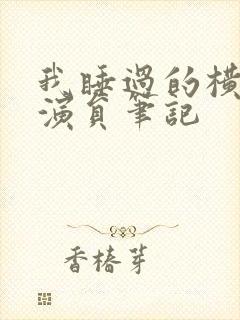 我睡過的橫
演員筆記
香椿芽